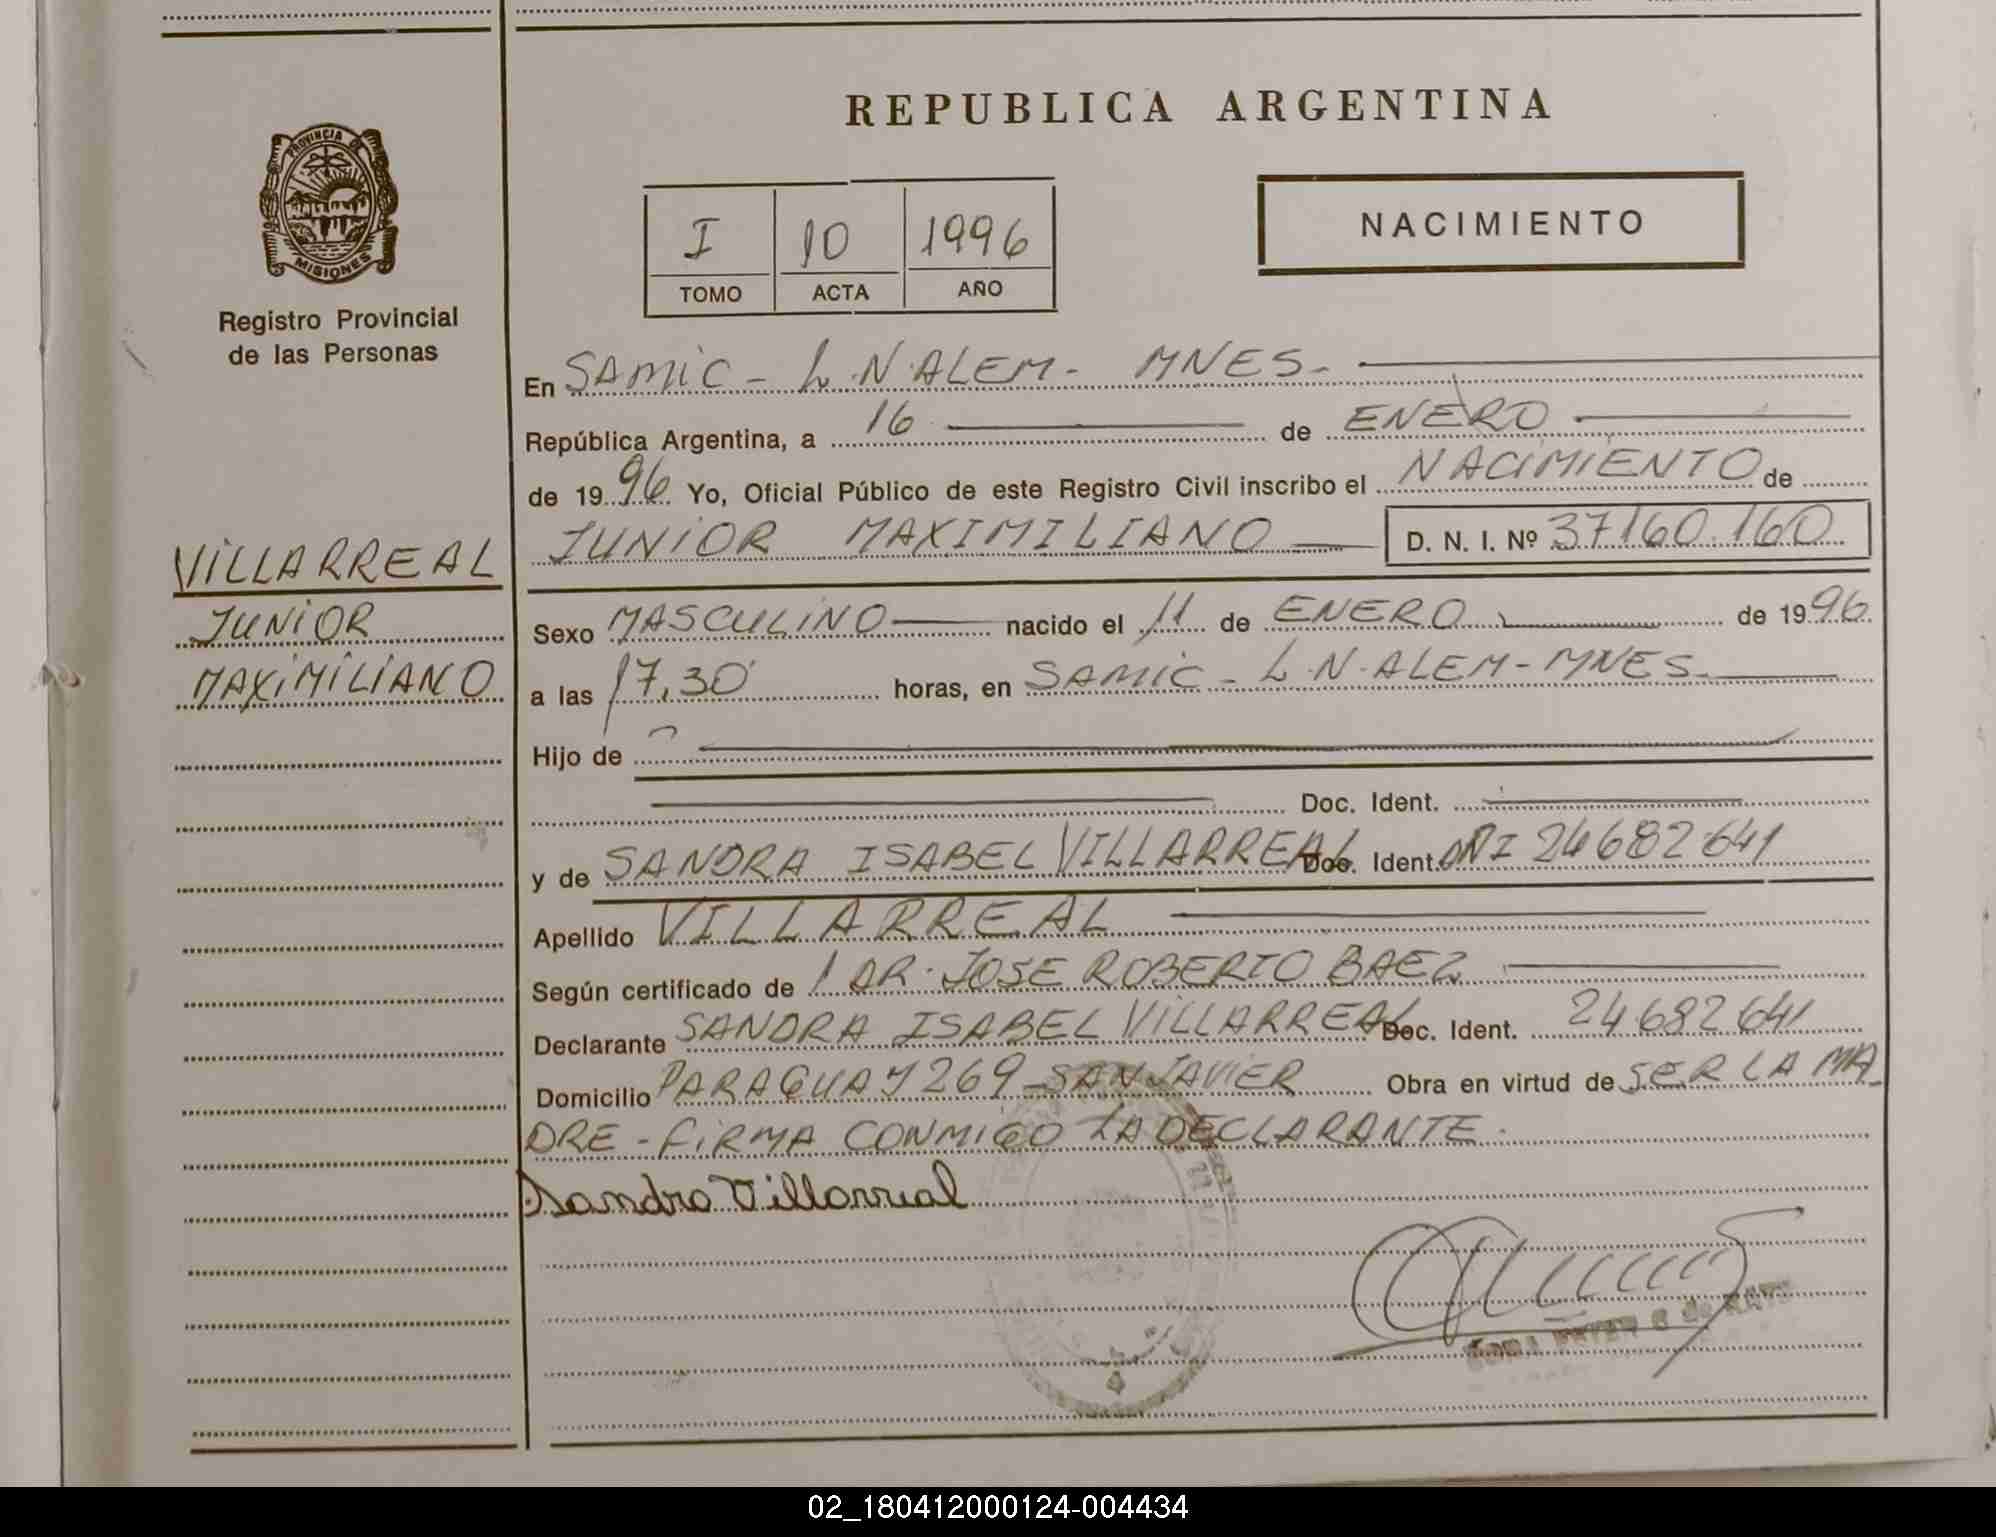 PROVINCIA DE
MISIONES
Registro Provincial
de las Personas
VILLARREAL
JUNIOR
MAXIMILIANO
REPUBLICA ARGENTINA
I 10 1996
TOMO ACTA AÑO
NACIMIENTO
En SAMIC - L.N.ALEM - MNES -
República Argentina, a 16 de ENERO
de 19 96 Yo, Oficial Público de este Registro Civil inscribo el NACIMIENTO de
JUNIOR MAXIMILIANO D. N. I. Nº 37160.160
Sexo MASCULINO nacido el 11 de ENERO de 19 96
a las 17,30 horas, en SAMIC - L.N.ALEM - MNES -
Hijo de
Doc. Ident.
y de SANDRA ISABEL VILLARREAL Doc. Ident. DNI 24682641
Apellido VILLARREAL
Según certificado de DR. JOSE ROBERTO BAEZ
Declarante SANDRA ISABEL VILLARREAL Doc. Ident. 24.682641
Domicilio PARAGUAY 269 - SAN JAVIER Obra en virtud de SER LA MA
DRE - FIRMA CONMIGO LA DECLARANTE.
Sandra Villarreal
02_180412000124-004434